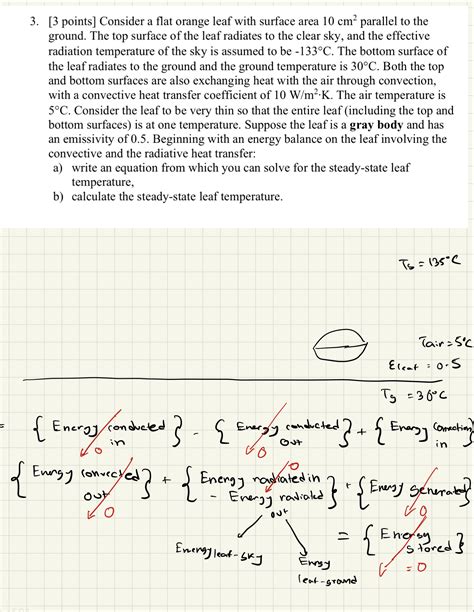 3. [3 points] Consider a flat orange leaf with surface area 10 cm² parallel to the
ground. The top surface of the leaf radiates to the clear sky, and the effective
radiation temperature of the sky is assumed to be -133°C. The bottom surface of
the leaf radiates to the ground and the ground temperature is 30°C. Both the top
and bottom surfaces are also exchanging heat with the air through convection,
with a convective heat transfer coefficient of 10 W/m²·K. The air temperature is
5°C. Consider the leaf to be very thin so that the entire leaf (including the top and
bottom surfaces) is at one temperature. Suppose the leaf is a gray body and has
an emissivity of 0.5. Beginning with an energy balance on the leaf involving the
convective and the radiative heat transfer:
a) write an equation from which you can solve for the steady-state leaf
temperature,
b) calculate the steady-state leaf temperature.
Ts = 135°C
Tair = 5°C
Eleaf = 0.5
Tg = 30°C
= { Energy conducted in } - { Energy conducted out } + { Energy convection in }
0 0
{ Energy convected out } + { Energy radiated in - Energy radiated out } + { Energy generated }
0 0 0
= { Energy stored }
= 0
Energy leaf-sky
Energy leaf-ground